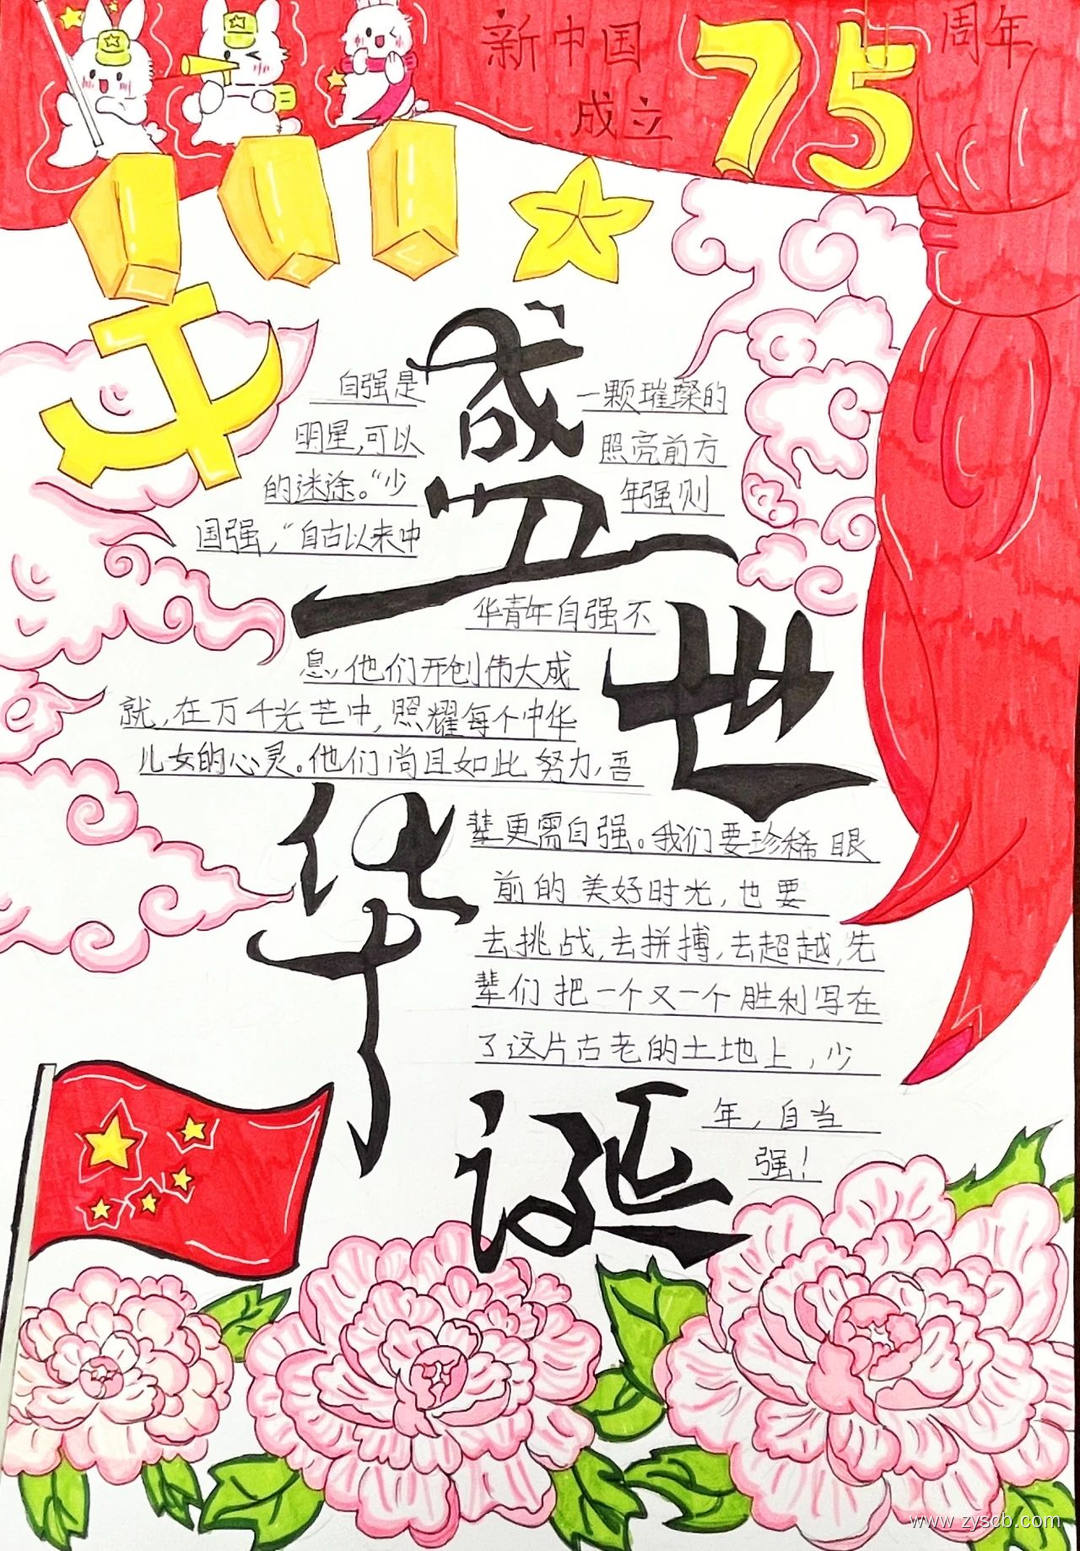 新中国
成立
75
周年
盛世华诞
自强是一颗璀璨的
明星,可以照亮前方
的迷途。“少年强则
国强,”自古以来中
华青年自强不
息,他们开创伟大成
就,在万千光芒中,照耀每个中华
儿女的心灵。他们尚且如此努力,吾
辈更需自强。我们要珍稀眼
前的美好时光,也要
去挑战,去拼搏,去超越,先
辈们把一个又一个胜利写在
了这片古老的土地上,少
年,自当
强!
www.zyscb.com